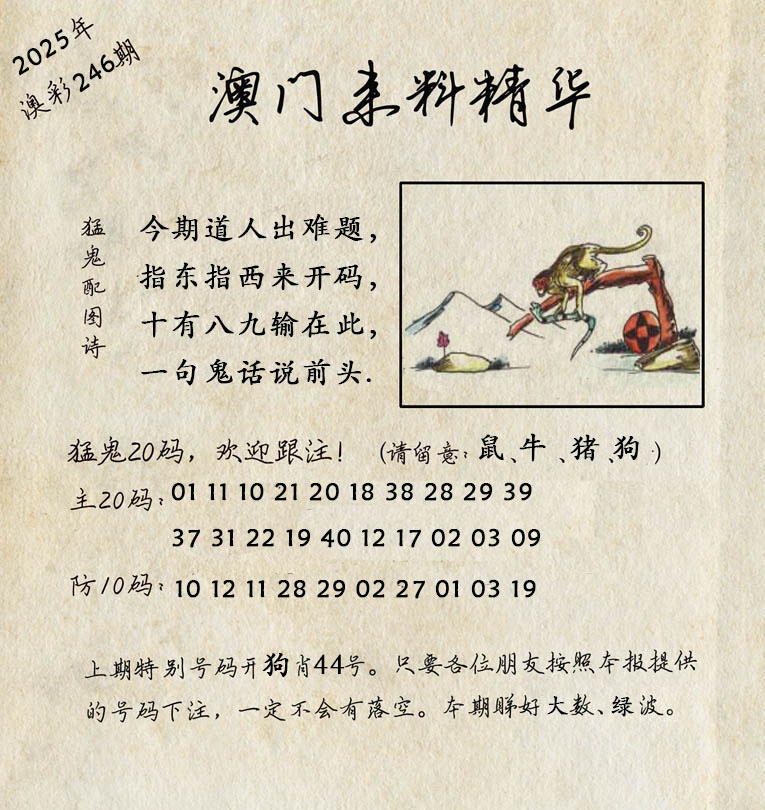 2025年
澳彩246期
澳门来料精华
猛鬼配图诗
今期道人出难题，
指东指西来开码，
十有八九输在此，
一句鬼话说前头.
猛鬼20码，欢迎跟注！（请留意：鼠、牛、猪、狗）
主20码：01 11 10 21 20 18 38 28 29 39
37 31 22 19 40 12 17 02 03 09
防10码：10 12 11 28 29 02 27 01 03 19
上期特别号码开狗肖44号。只要各位朋友按照本报提供
的号码下注，一定不会有落空。本期睇好大数、绿波。